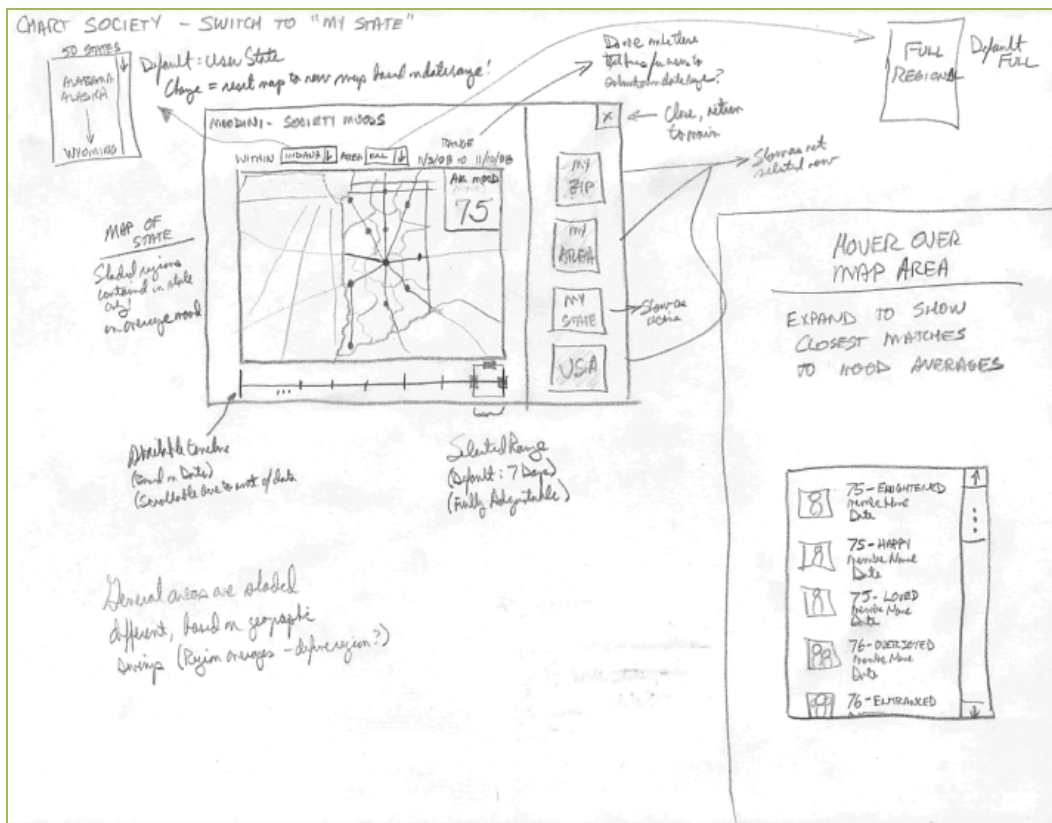 CHART SOCIETY - SWITCH TO "MY STATE"
50 STATES
ALABAMA
ALASKA
WYOMING
Default = User State
Change = reset map to new map based on date range!
FULL
REGIONAL
Default
FULL
Close, return
to main
MOODINI - SOCIETY MOODS
X
WITHIN INDIANA AREA FULL
RANGE
11/3/08 to 11/10/08
AVG MOOD
75
MY
ZIP
MY
AREA
MY
STATE
USA
Show as not
selected now
Show as
active
MAP OF
STATE
Shaded regions
contained in state
only!
on average mood
Available timeline
(Based on Date)
(Scrollable due to amt of data
Selected Range
(Default: 7 Days)
(Fully Adjustable)
General areas are shaded
different, based on geographic
(Region averages - define region?)
HOVER OVER
MAP AREA
EXPAND TO SHOW
CLOSEST MATCHES
TO MOOD AVERAGES
75-ENLIGHTENED
Member Name
Date
75-HAPPY
Member Name
Date
75-LOVED
Member Name
Date
76-OVERJOYED
Member Name
Date
76-ENTRANCED